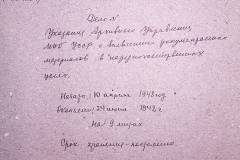 Дело №
Указания Архивного Управления
МВД УССР о выявлении документальных
материалов в народнохозяйственных
целях.
Начато: 10 апреля 1948 год
Окончено: 24 июня 1948 г.
На 9 листах
Срок хранения - постоянно